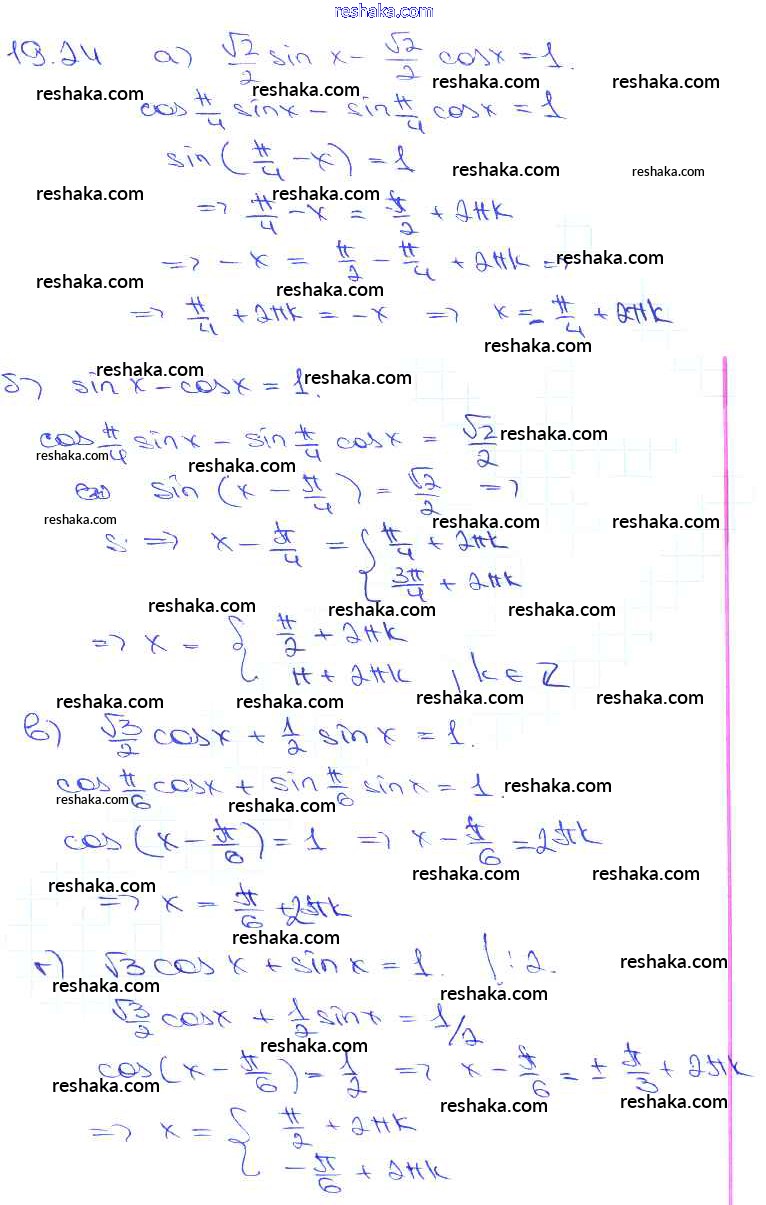 reshaka.com
19.24 а) √2/2 sin x - √2/2 cosx = 1.
reshaka.com reshaka.com reshaka.com reshaka.com
cos π/4 sinx - sin π/4 cosx = 1
sin(π/4 - x) = 1
reshaka.com reshaka.com
reshaka.com reshaka.com
=> π/4 - x = π/2 + 2πk
=> -x = π/2 - π/4 + 2πk =>
reshaka.com
reshaka.com reshaka.com
=> π/4 + 2πk = -x => x = -π/4 + 2πk
reshaka.com
reshaka.com
б) sin x - cosx = 1.
reshaka.com
cos π/4 sinx - sin π/4 cosx = √2/2
reshaka.com
reshaka.com reshaka.com
sin (x - π/4) = √2/2 =>
reshaka.com reshaka.com reshaka.com
=> x - π/4 = { π/4 + 2πk
3π/4 + 2πk
reshaka.com reshaka.com reshaka.com
=> x = { π/2 + 2πk
π + 2πk , k ∈ Z
reshaka.com reshaka.com reshaka.com reshaka.com
в) √3/2 cosx + 1/2 sinx = 1.
cos π/6 cosx + sin π/6 sinx = 1.
reshaka.com
reshaka.com reshaka.com
cos(x - π/6) = 1 => x - π/6 = 2πk
reshaka.com reshaka.com
reshaka.com
=> x = π/6 + 2πk
reshaka.com
г) √3 cos x + sinx = 1. |:2.
reshaka.com
reshaka.com reshaka.com
√3/2 cosx + 1/2 sinx = 1/2
reshaka.com
cos(x - π/6) = 1/2 => x - π/6 = ± π/3 + 2πk
reshaka.com reshaka.com reshaka.com
=> x = { π/2 + 2πk
-π/6 + 2πk